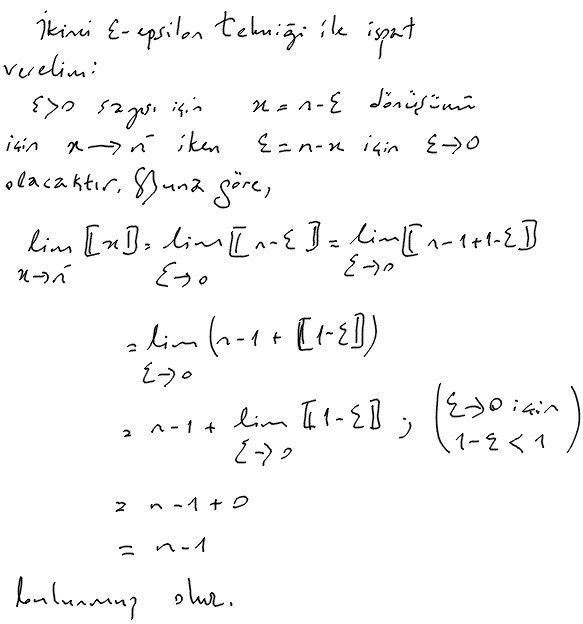 İkinci ε-epsilon tekniği ile ispat
verelim:
ε>0 sayısı için x = n-ε dönüşümü
için x→n⁻ iken ε = n-x için ε→0
olacaktır. Buna göre,
lim_{x→n⁻} ⟦x⟧ = lim_{ε→0} ⟦n-ε⟧ = lim_{ε→0} ⟦n-1+1-ε⟧
= lim_{ε→0} (n-1 + ⟦1-ε⟧)
= n-1 + lim_{ε→0} ⟦1-ε⟧ ; (ε→0 için 1-ε < 1)
= n-1+0
= n-1
bulunmuş olur.